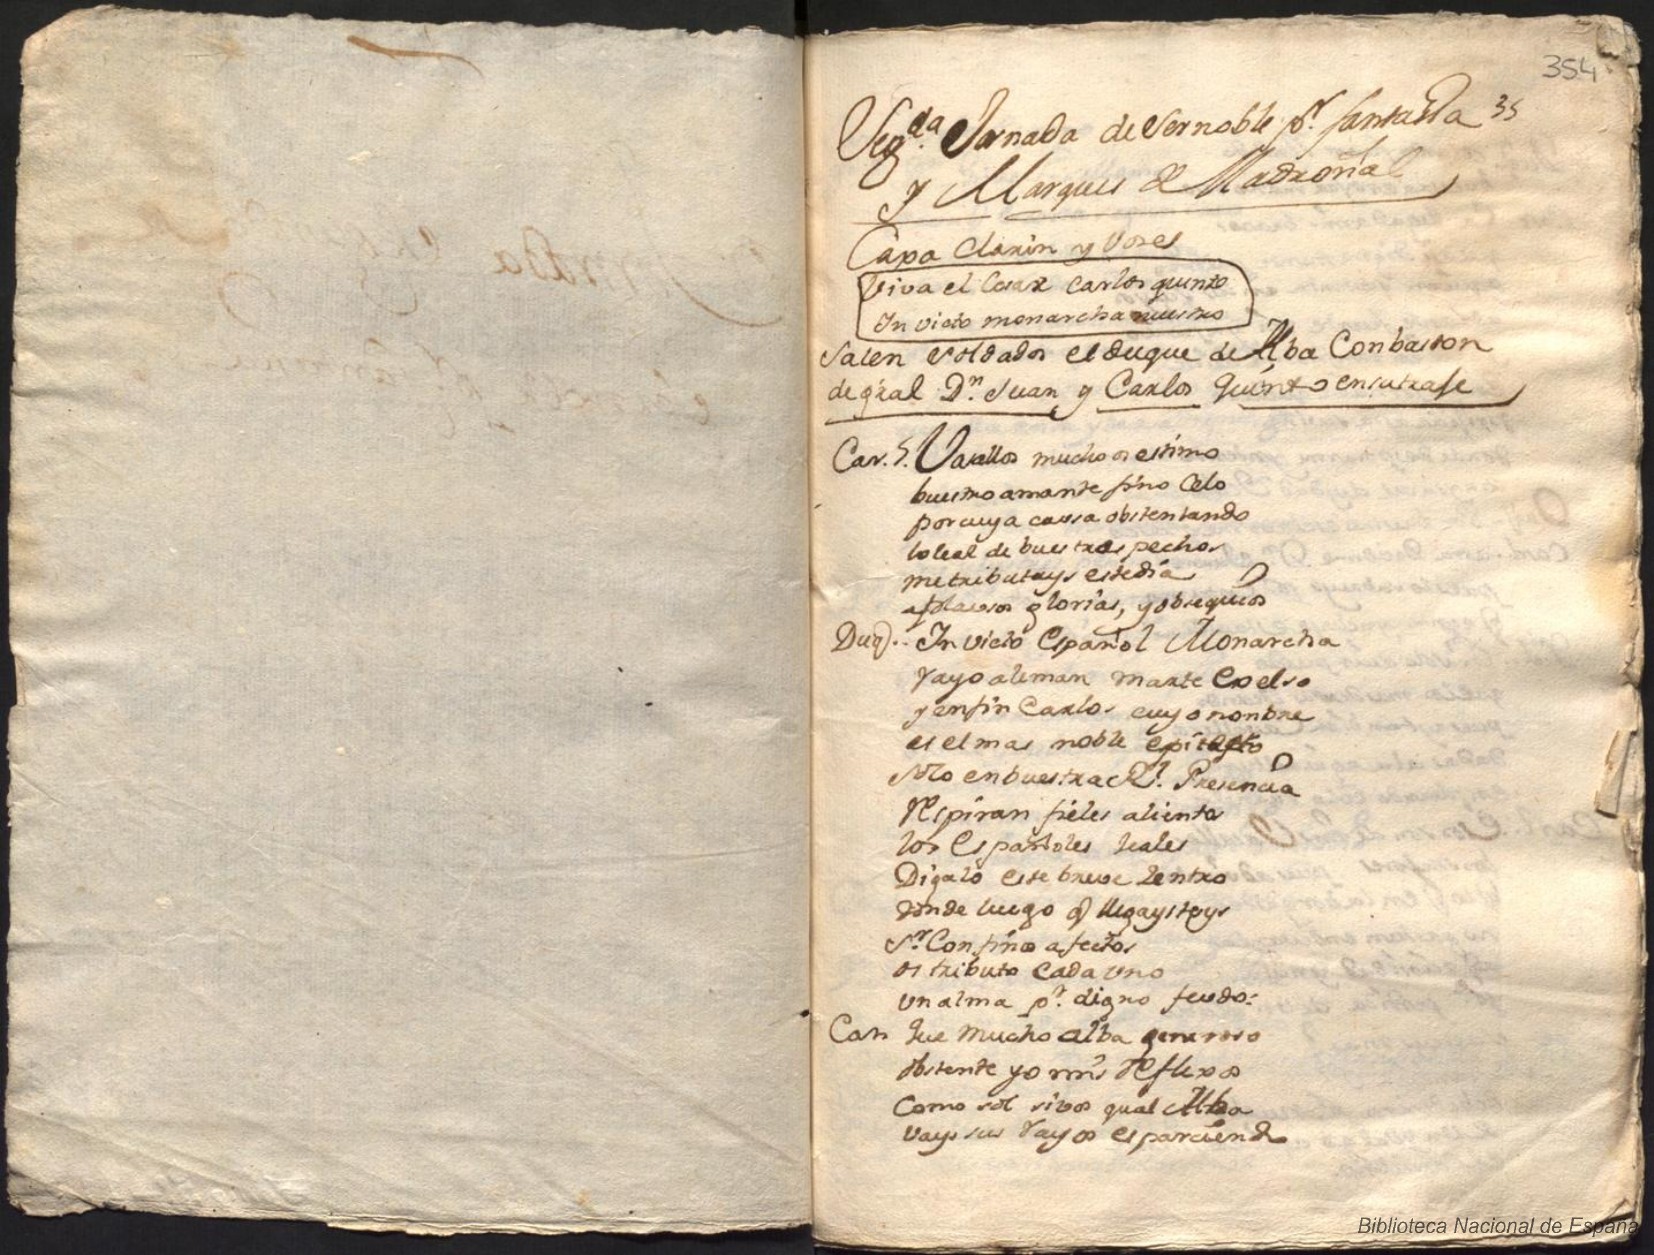 354
35
Seg.da Jornada de Ser noble pr. fantasia
y Marques de Madroñal
Caxa Clarin y Vozes
Viva el Cesar Carlos quinto
Invicto monarcha nuestro
Salen Soldados el duque de Alba Con baston
de gral Dn. Juan y Carlos Quinto en su traje
Car. 5. Vasallos mucho os estimo
buestro amante fino Celo
por cuya causa obstentando
lo leal de buestros pechos
me tributays este dia
aplausos glorias, y obsequios
Duq. Invicto Español Monarcha
rayo aleman marte Excelso
y en fin Carlos cuyo nombre
es el mas noble epitecto
solo en buestra Rl. Presencia
respiran fieles alientos
los Españoles leales
Digalo este breve Zentro
donde luego q llegasteys
Sr. Con finos afectos
os tributo Cada uno
un alma pr. digno feudo:
Car Que mucho Alba generoso
obstente yo mis reflexos
Como sol si vos qual Alba
vays sus rayos esparciendo
Biblioteca Nacional de España